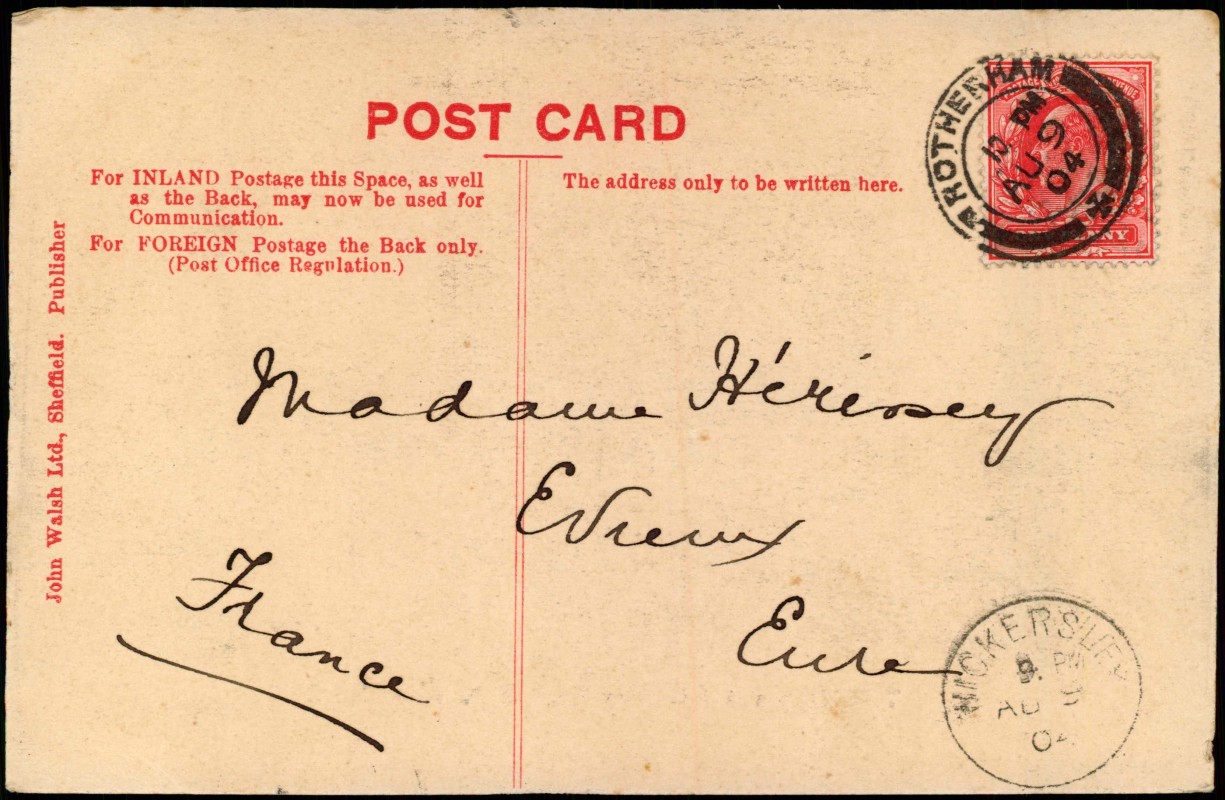 POST CARD
For INLAND Postage this Space, as well
as the Back, may now be used for
Communication.
For FOREIGN Postage the Back only.
(Post Office Regulation.)
The address only to be written here.
John Walsh Ltd., Sheffield. Publisher
ROTHERHAM
12 PM
AU 9
04
POSTAGE REVENUE
ONE PENNY
Madame Hérissey
Evreux
Eure
France
WICKERSLEY
9. PM
AU 9
04